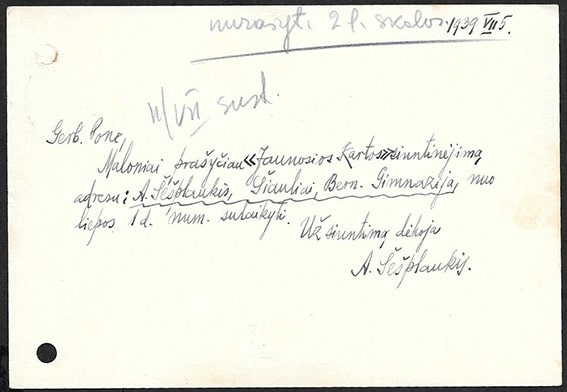 nurašyt. 2 l. skolos. 1939 VII 5.
11/VII sust.
Gerb. Pone,
Maloniai prašyčiau «Jaunosios Kartos» siuntinėjimą
adresu: A. Šėšplaukis, Šiauliai, Bern. Gimnazija, nuo
liepos 1 d. num. sulaikyti.
Už siuntimą dėkoja
A. Šešplaukis.